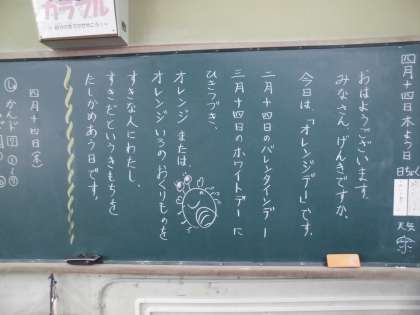 カラフル
四月十四日木よう日
日ちょく
天気
おはようございます。
みなさん、げんきですか。
今日は、「オレンジデー」です。
二月十四日のバレンタインデー
三月十四日のホワイトデーに
ひきつづき、
オレンジ または、
オレンジいろのおくりものを
すきな人にわたし、
すきだというきもちを
たしかめあう日です。
四月十四日(木)
かんド